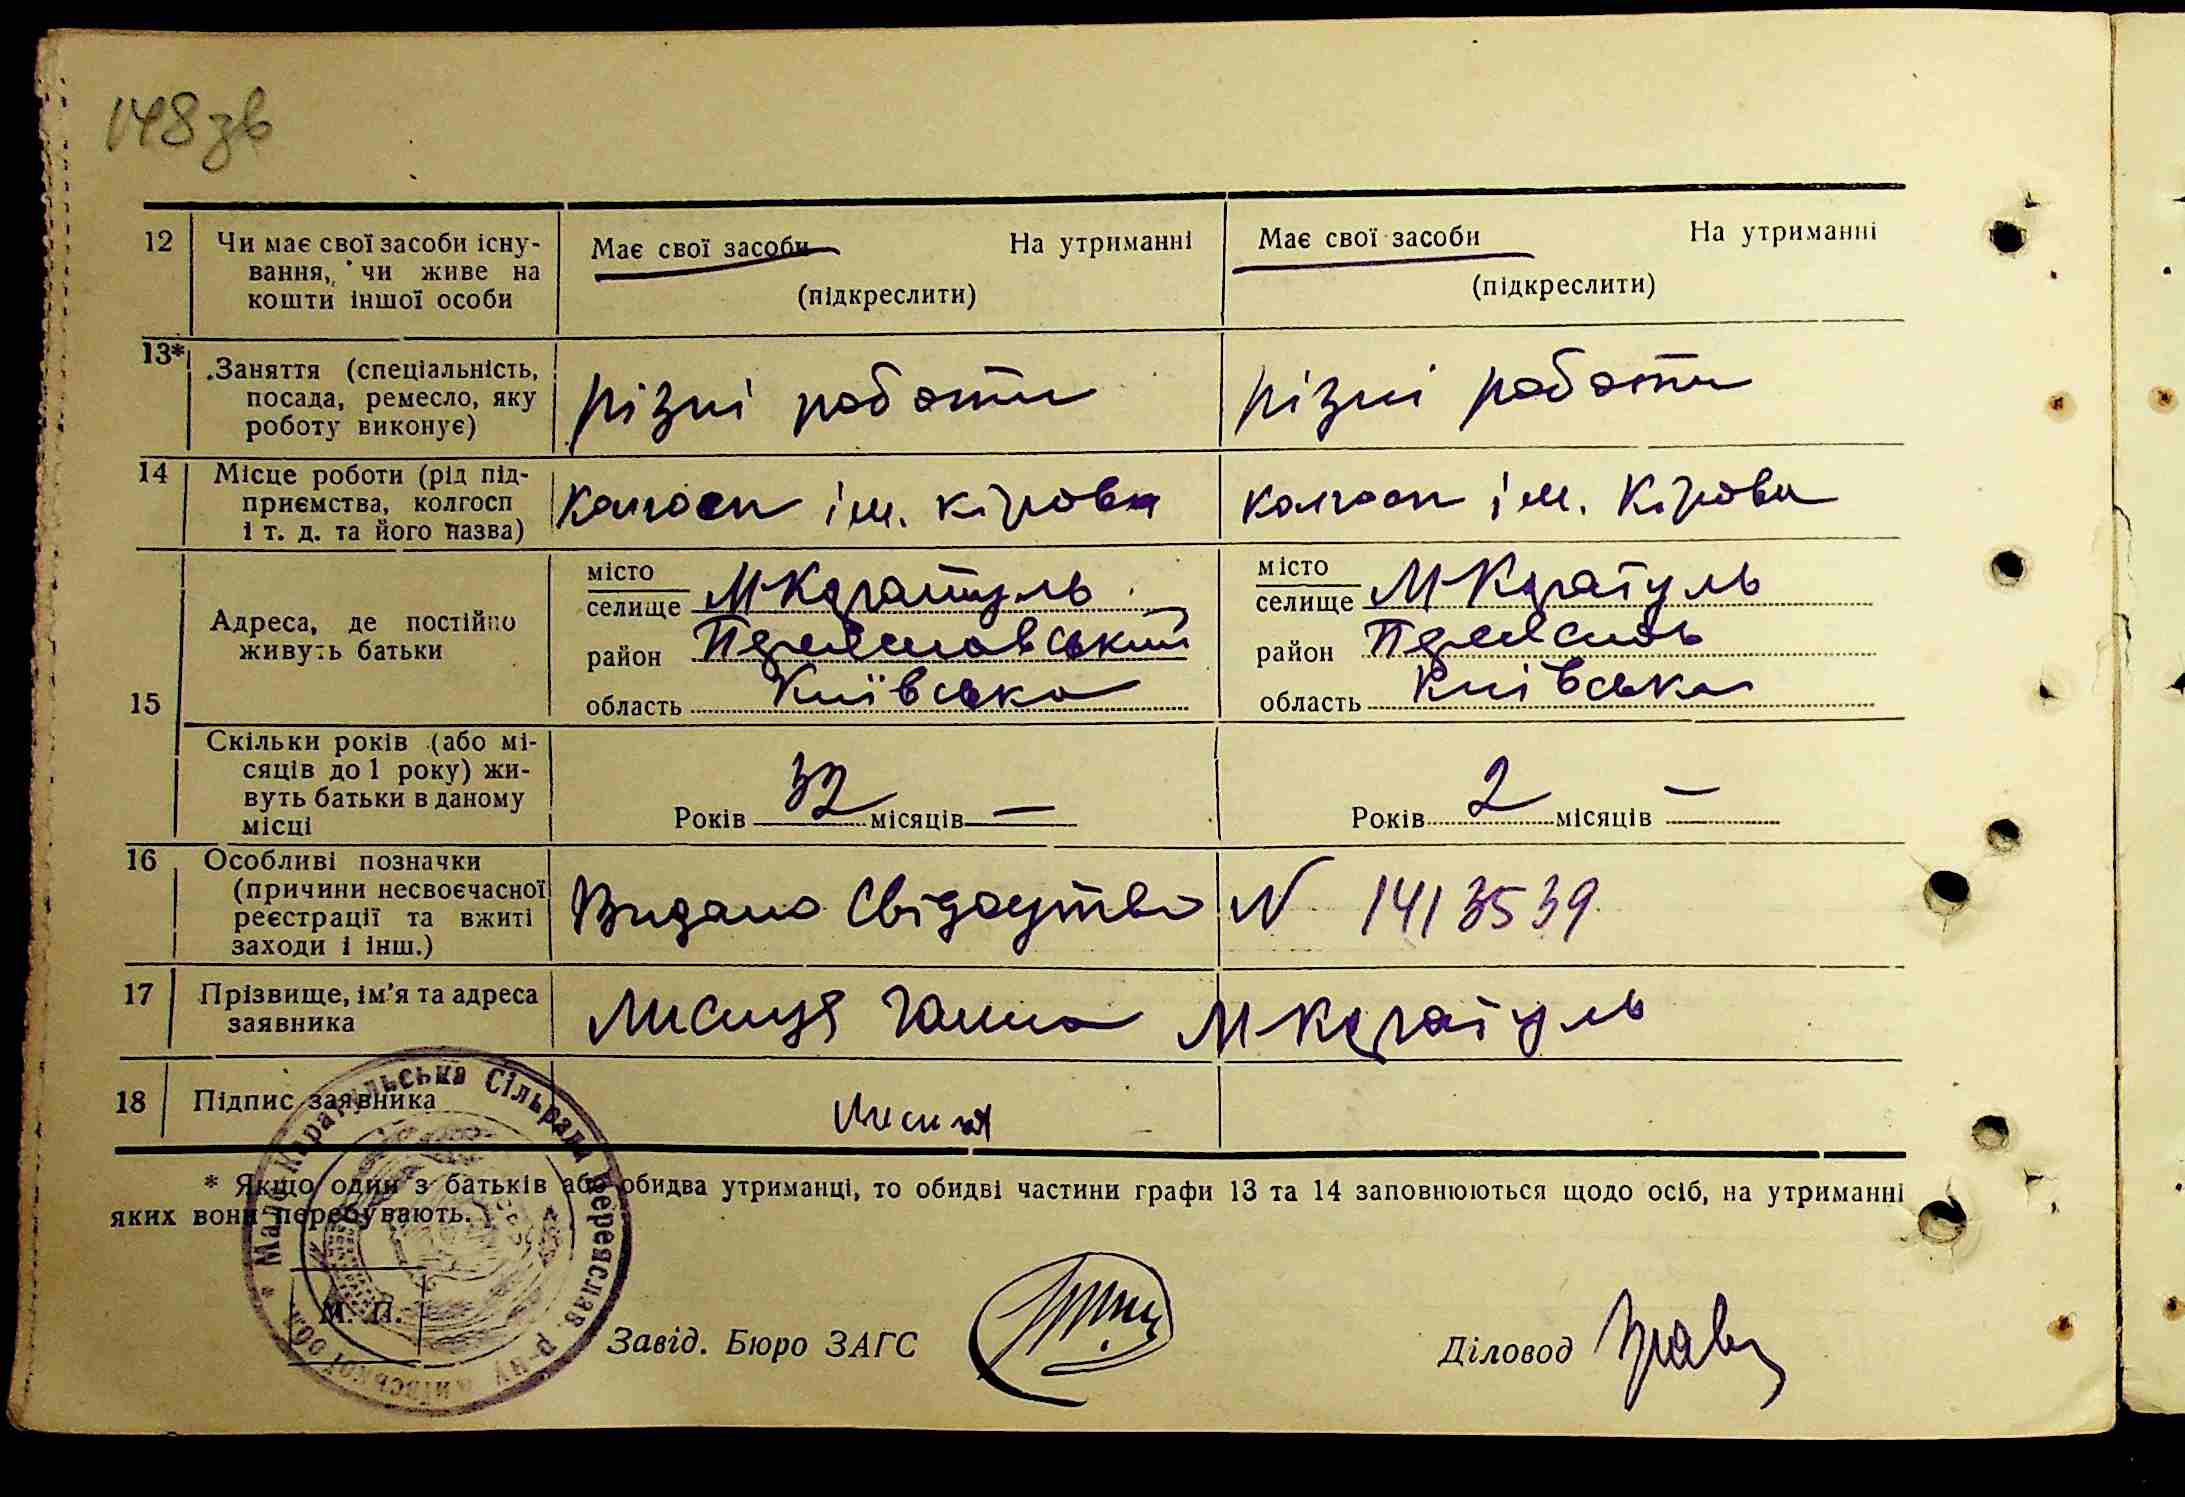 148зв
12 Чи має свої засоби існу-
вання, чи живе на
кошти іншої особи
Має свої засоби На утриманні
(підкреслити)
Має свої засоби На утриманні
(підкреслити)
13* Заняття (спеціальність,
посада, ремесло, яку
роботу виконує)
різні роботи
різні роботи
14 Місце роботи (рід під-
приємства, колгосп
і т. д. та його назва)
Колгосп ім. Кірова
Колгосп ім. Кірова
15 Адреса, де постійно
живуть батьки
місто
селище М Каратуль
район Переяславський
область Київська
місто
селище М Каратуль
район Переяслов
область Київська
Скільки років (або мі-
сяців до 1 року) жи-
вуть батьки в даному
місці
Років 32 місяців —
Років 2 місяців —
16 Особливі позначки
(причини несвоєчасної
реєстрації та вжиті
заходи і інш.)
Видано Свідоцтво N 1413539
17 Прізвище, ім'я та адреса
заявника
Лисиця Ганна М Каратуль
18 Підпис заявника
Лисиця
* Якщо один з батьків або обидва утриманці, то обидві частини графи 13 та 14 заповнюються щодо осіб, на утриманні
яких вони перебувають.
Мало Каратульська Сільрада Переяслав. р-ну Київської обл. *
М. П.
Завід. Бюро ЗАГС
Діловод